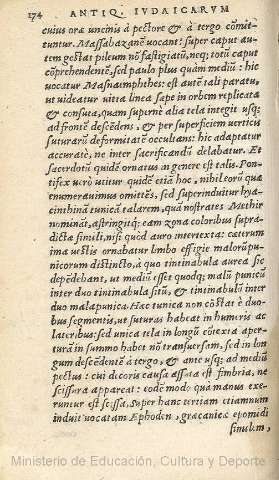 174 ANTIQ. IVDAICARVM
cuius oræ uncinis à pectore & à tergo cōmit-
tuntur. Massabazanē uocant: super caput au-
tem gestat pileum nō fastigiatū, neq; totū caput
cōprehendentē, sed paulo plus quàm mediū: hic
uocatur Masnaemphthes: est autē tali paratu,
ut uideatur uitta linea sæpe in orbem replicata
& consuta, quam supernè alia tela integit usq;
ad frontē descēdens, & per superficiem uerticis
suturarū deformitatē occulians: hic adaptatur
accuratè, ne inter sacrificandū delabatur. Et
sacerdotū quidē ornatus in genere est talis. Pon-
tifex uerò utitur quidē etiā hoc, nihil eorū quæ
enumerauimus omittēs, sed superinduitur hya-
cinthinā tunicā talarem, quā nostrates Methir
nominát, astringitq; eam zona coloribus supra-
dicta simili, nisi quòd auro intertexta: cæterum
ima uestis ornabatur limbo effigie malorūpu-
nicorum distincto, à quo tintinabula aurea sic
depēdebant, ut mediū isset quodq; malū punicū
inter duo tintinabula sitū, & tintinabulū inter
duo malapunica. Hæc tunica non cōstat è duo-
bus segmentis, ut suturas habeat in humeris ac
lateribus: sed unica tela in longū cōtexta aper-
turā in summo habet nō transuersam, sed in lon-
gum descēdentē à tergo, & ante usq; ad mediū
pectus: cui decoris causa assuta est fimbria, ne
scissura appareat: eodē modo qua manus exe-
runtur est scissa. Super hanc tertiam etiamnum
induit uocatam Ephoden, græcanicæ epomidi
similem,
Ministerio de Educación, Cultura y Deporte